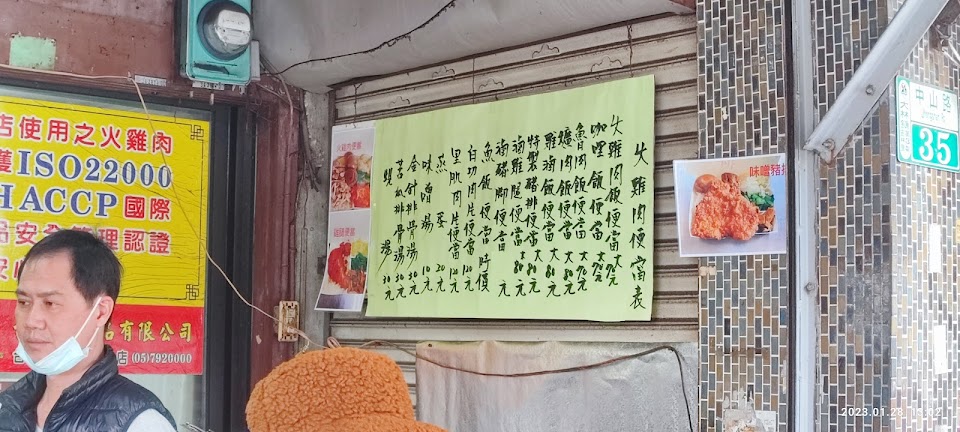 店使用之火雞肉
獲ISO22000
HACCP國際
品安全管理認證
有限公司
店 (05)7920000
火雞肉便當
雞腿便當
火雞肉便當表
火雞肉飯便當 大70元
咖哩飯便當 大70元
魯肉飯便當 大70元
爌肉飯便當 大80元
雞肉飯便當 大80元
特製豬排便當 大80元
滷雞腿便當 大80元
滷豬腳便當 元
魚飯便當 時價
白切肉片便當 120元
里肌肉片便當 120元
蒸蛋 20元
味噌湯 10元
金針排骨湯 30元
苦瓜排骨湯 30元
蜆湯 30元
味噌豬排
中山路
大林鎮
35
2023.01.28 13:02